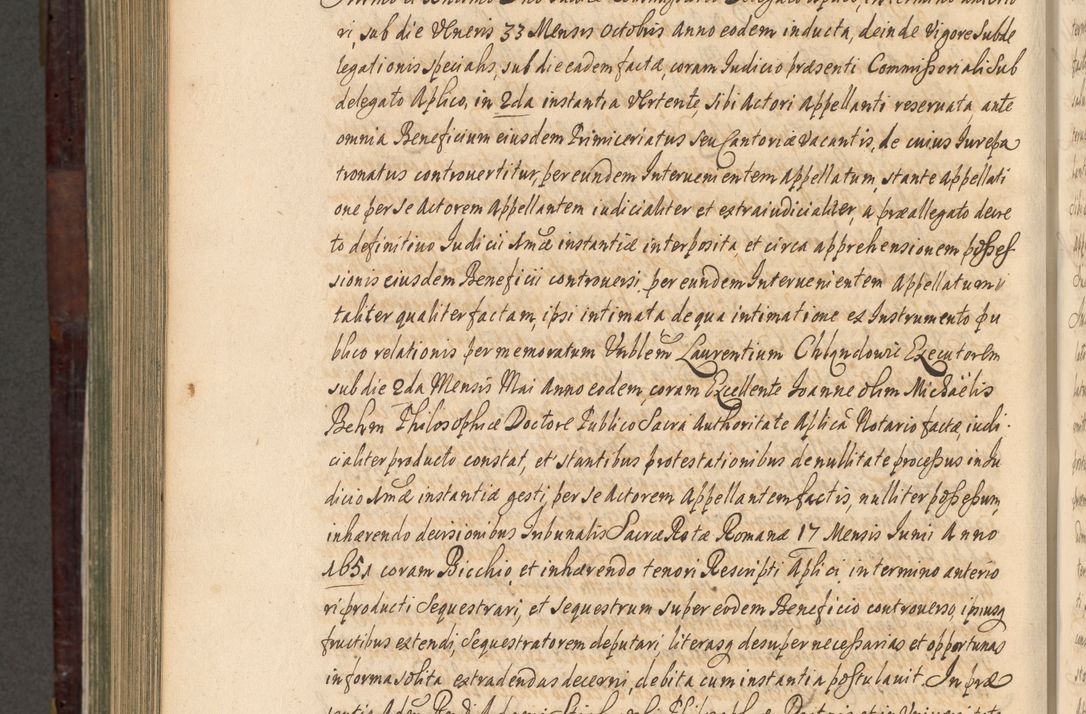 ri, sub die Veneris 33 Mensis Octobris Anno eodem inducta, deinde vigore Subde
legationis specialis, sub die eadem factæ, coram Iudicio præsenti Commissoriali Sub
delegato Aplico, in 2da instantia vertente, sibi Actori Appellanti reservata, ante
omnia Beneficium eiusdem Primiceriatus seu Cantoriæ vacantis, de cuius Iurepa
tronatus controvertitur, per eundem Intervenientem Appellatum, stante appellati
one per se Actorem Appellantem iudicialiter et extraiudicialiter, a præallegato decre
to definitivo Iudicii Amæ instantiæ interposita et circa apprehensionem posses
sionis eiusdem Beneficii controversi, per eundem Intervenientem Appellatum
taliter qualiter factam, ipsi intimata de qua intimatione ex Instrumento pu
blico relationis per memoratum Vnblem Laurentium Executorem
sub die 2da Mensis Mai Anno eodem, coram Excellente Ioanne olim Michaëlis
Behm Philosophiæ Doctore Publico Sacra Authoritate Aplicâ Notario factæ, iudi-
cialiter producto constat, et stantibus protestationibus de nullitate processus in Iu
dicio Amæ instantiæ gesti, per se Actorem Appellantem factis, nulliter possessum,
inhærendo decisionibus Tribunalis Sacræ Rotæ Romanæ 17 Mensis Iunii Anno
1651 coram Bicchio, et inhærendo tenori Rescripti Aplici, in termino anterio
ri producti Sequestrari, et sequestrum super eodem Beneficio controverso, ipiusq
fructibus extendi, Sequestratorem deputari, literasq desuper necessarias et opportunas
in forma solita extradendas decerni, debita cum instantia postulavit. In præ